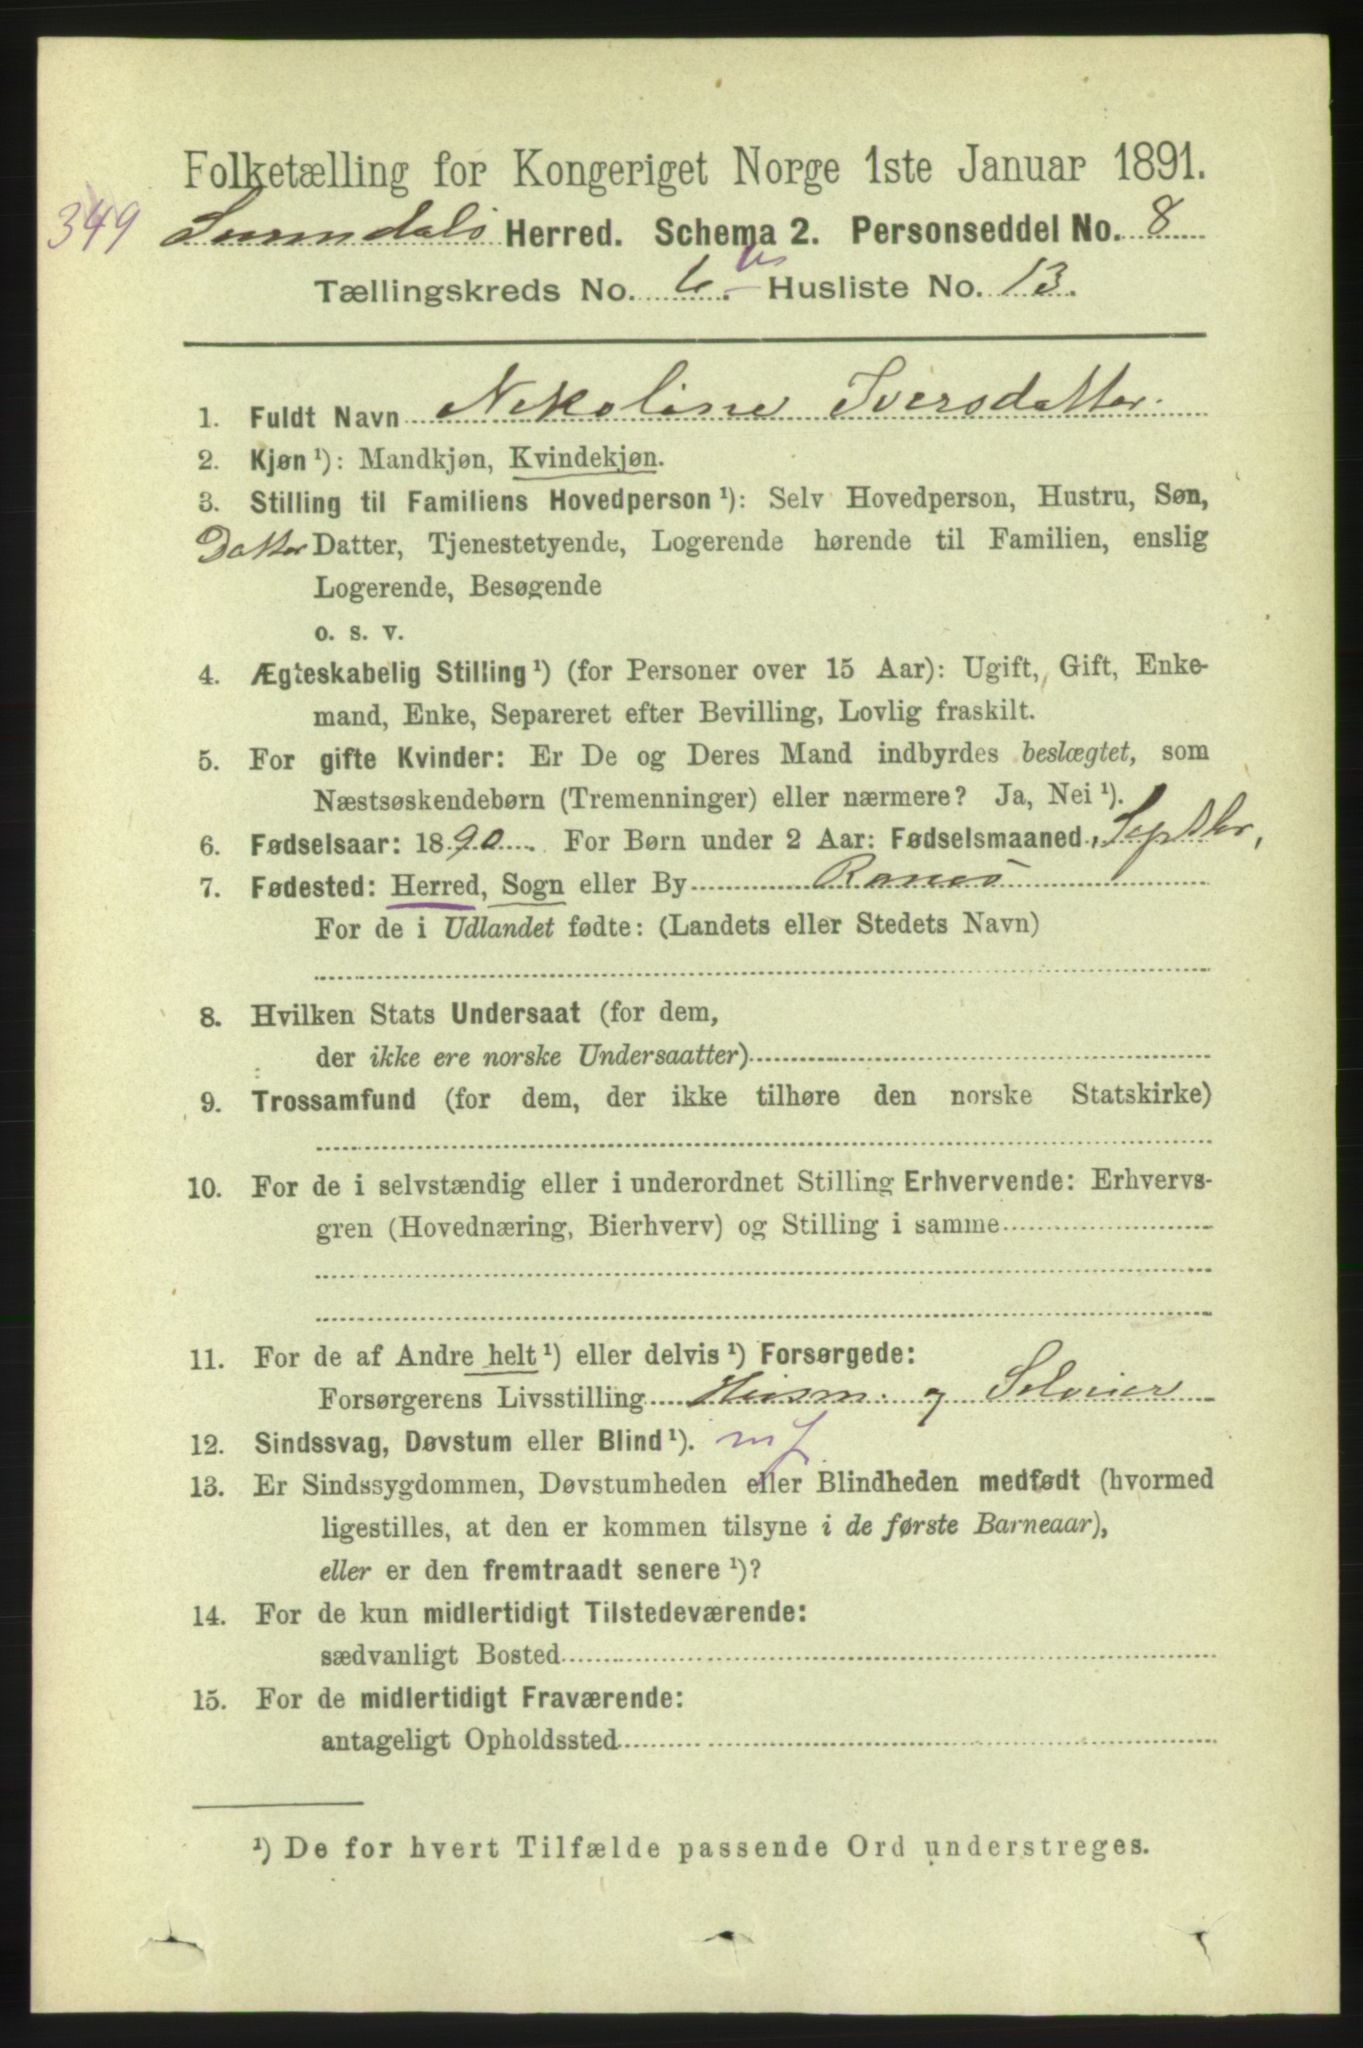 Folketælling for Kongeriget Norge 1ste Januar 1891.
349
Surendals Herred. Schema 2. Personseddel No. 8
Tællingskreds No. 6. Husliste No. 13.
1. Fuldt Navn Nekoline Iversdatter.
2. Kjøn ¹): Mandkjøn, Kvindekjøn.
3. Stilling til Familiens Hovedperson ¹): Selv Hovedperson, Hustru, Søn,
Datter Datter, Tjenestetyende, Logerende hørende til Familien, enslig
Logerende, Besøgende
o. s. v.
4. Ægteskabelig Stilling ¹) (for Personer over 15 Aar): Ugift, Gift, Enke-
mand, Enke, Separeret efter Bevilling, Lovlig fraskilt.
5. For gifte Kvinder: Er De og Deres Mand indbyrdes beslægtet, som
Næstsøskendebørn (Tremenninger) eller nærmere? Ja, Nei ¹).
6. Fødselsaar: 1890. For Børn under 2 Aar: Fødselsmaaned, Septbr,
7. Fødested: Herred, Sogn eller By Ranes
For de i Udlandet fødte: (Landets eller Stedets Navn)
8. Hvilken Stats Undersaat (for dem,
der ikke ere norske Undersaatter)
9. Trossamfund (for dem, der ikke tilhøre den norske Statskirke)
10. For de i selvstændig eller i underordnet Stilling Erhvervende: Erhvervs-
gren (Hovednæring, Bierhverv) og Stilling i samme
11. For de af Andre helt ¹) eller delvis ¹) Forsørgede:
Forsørgerens Livsstilling Husm. og Selveier
12. Sindssvag, Døvstum eller Blind ¹).
13. Er Sindssygdommen, Døvstumheden eller Blindheden medfødt (hvormed
ligestilles, at den er kommen tilsyne i de første Barneaar),
eller er den fremtraadt senere ¹)?
14. For de kun midlertidigt Tilstedeværende:
sædvanligt Bosted
15. For de midlertidigt Fraværende:
antageligt Opholdssted
¹) De for hvert Tilfælde passende Ord understreges.